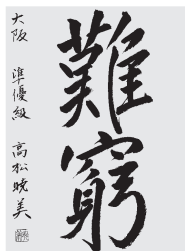 難窮
大阪 準優級 高松暁美